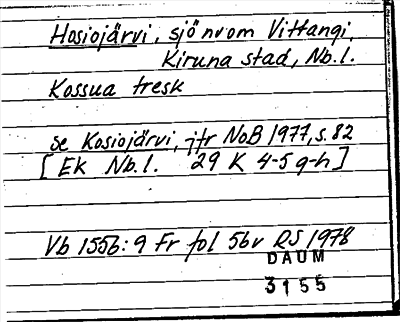 Hosiojärvi, sjö nv om Vittangi,
Kiruna stad, Nb.l.
Kossua tresk
se Kosiojärvi, jfr NoB 1977, s. 82
[Ek Nb.l. 29 K 4-5 g-h]
Vb 1556:9 Fr fol 56v RS 1978
DAUM
3155